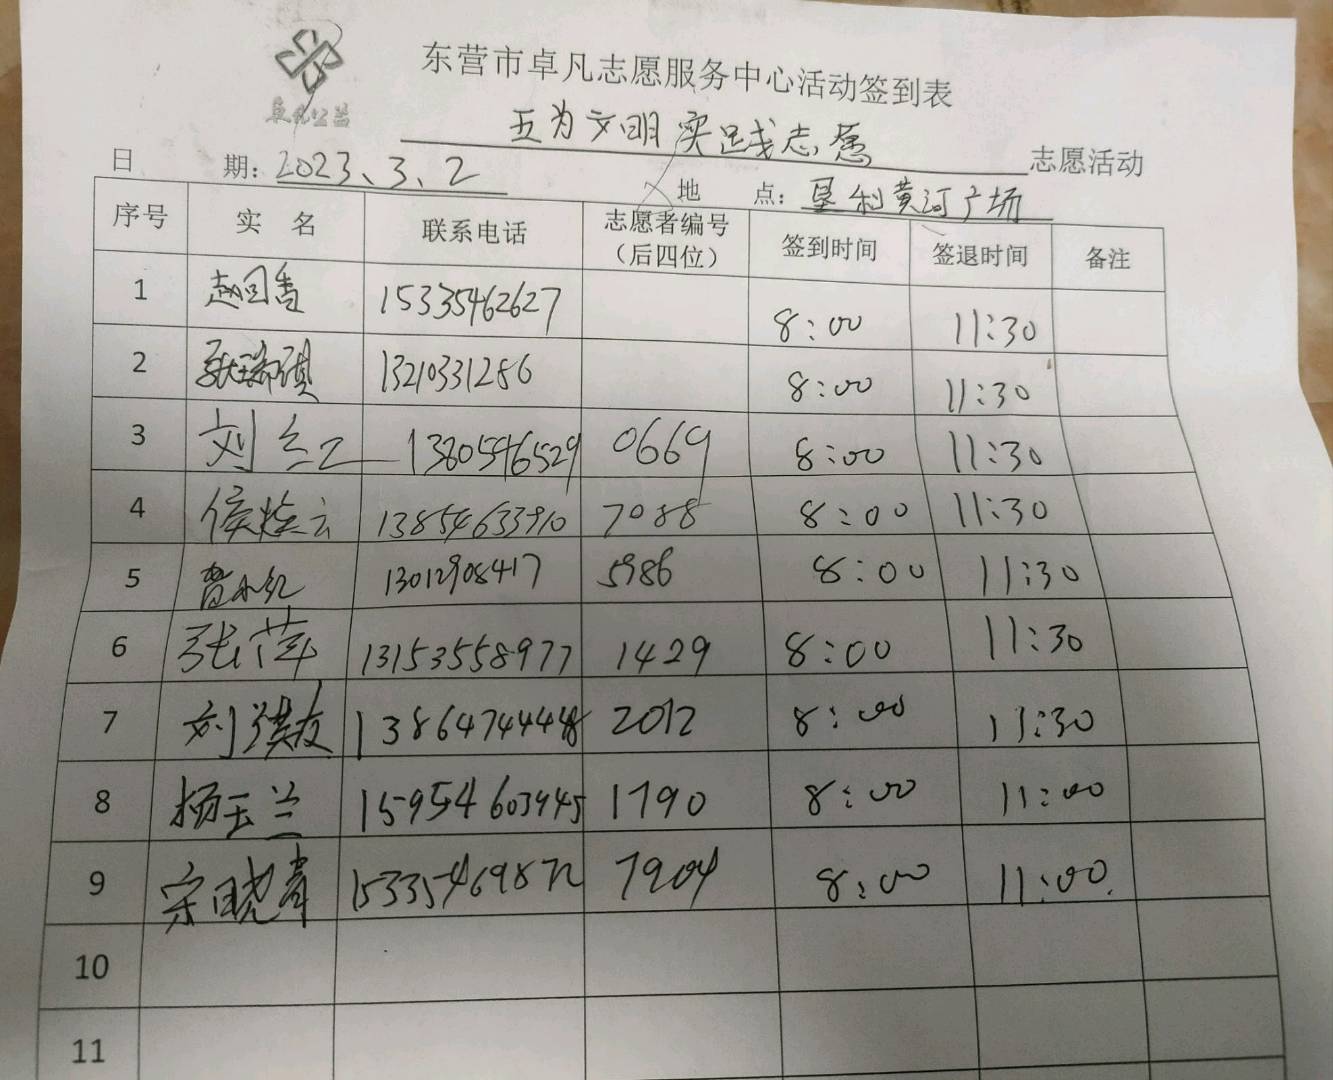 卓凡公益
东营市卓凡志愿服务中心活动签到表
五为文明实践志愿 志愿活动
日 期: 2023、3、2 地 点: 垦利黄河广场
序号 实 名 联系电话 志愿者编号(后四位) 签到时间 签退时间 备注
1 赵回香 15335462627 8:00 11:30
2 13210331286 8:00 11:30
3 刘 13805465299 0669 8:00 11:30
4 侯 13854633910 7088 8:00 11:30
5 曹 13012908417 5986 8:00 11:30
6 张萍 13153558977 1429 8:00 11:30
7 刘 13864744448 2012 8:00 11:30
8 杨玉兰 15954603945 1790 8:00 11:00
9 宋晓青 15335469872 7904 8:00 11:00
10
11